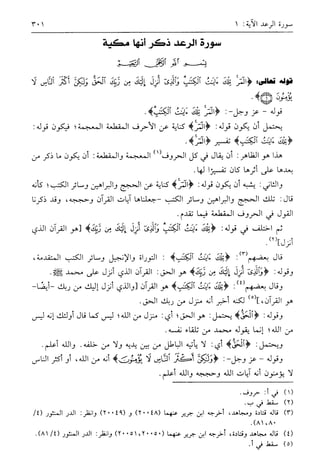 سورة الرعد الآية: ١ ٣٠١
سورة الرعد ذكر أنها مكية
بسم الله الرحمن الرحيم
قوله تعالى: ﴿الٓمٓرۚ تِلۡكَ ءَايَٰتُ ٱلۡكِتَٰبِۗ وَٱلَّذِيٓ أُنزِلَ إِلَيۡكَ مِن رَّبِّكَ ٱلۡحَقُّ وَلَٰكِنَّ أَكۡثَرَ ٱلنَّاسِ لَا
يُؤۡمِنُونَ ١﴾.
قوله - عز وجل-: ﴿الٓمٓرۚ تِلۡكَ ءَايَٰتُ ٱلۡكِتَٰبِ﴾.
يحتمل أن يكون قوله: ﴿الٓمٓرۚ﴾ كناية عن الأحرف المقطعة المعجمة؛ فيكون قوله:
﴿تِلۡكَ ءَايَٰتُ ٱلۡكِتَٰبِ﴾ تفسير ﴿الٓمٓرۚ﴾.
هذا هو الظاهر: أن يقال في كل الحروف(١) المعجمة والمقطعة: أن يكون ما ذكر من
بعدها على أثرها كان تفسيرًا لها.
والثاني: يشبه أن يكون قوله: ﴿الٓمٓرۚ﴾ كناية عن الحجج والبراهين وسائر الكتب؛ كأنه
قال: تلك الحجج والبراهين وسائر الكتب -جعلناها آيات القرآن وحججه، وقد ذكرنا
القول في الحروف المقطعة فيما تقدم.
ثم اختلف في قوله: ﴿تِلۡكَ ءَايَٰتُ ٱلۡكِتَٰبِۗ وَٱلَّذِيٓ أُنزِلَ إِلَيۡكَ مِن رَّبِّكَ﴾ [هو القرآن الذي
أنزل](٢).
قال بعضهم(٣): ﴿تِلۡكَ ءَايَٰتُ ٱلۡكِتَٰبِ﴾: التوراة والإنجيل وسائر الكتب المتقدمة،
وقوله: ﴿وَٱلَّذِيٓ أُنزِلَ إِلَيۡكَ مِن رَّبِّكَ﴾ هو الحق: القرآن الذي أنزل على محمد ﷺ.
وقال بعضهم(٤): ﴿تِلۡكَ ءَايَٰتُ ٱلۡكِتَٰبِ﴾ هو القرآن [والذي أنزل إليك من ربك -أيضًا-
هو القرآن،](٥) لكنه أخبر أنه منزل من ربك الحق.
وقوله: ﴿ٱلۡحَقُّ﴾ يحتمل: هو الحق؛ أي: منزل من الله؛ ليس كما قال أولئك إنه ليس
من الله؛ إنما يقوله محمد من تلقاء نفسه.
ويحتمل: ﴿ٱلۡحَقُّ﴾ أي: لا يأتيه الباطل من بين يديه ولا من خلفه. والله أعلم.
وقوله - عز وجل-: ﴿وَلَٰكِنَّ أَكۡثَرَ ٱلنَّاسِ لَا يُؤۡمِنُونَ﴾ أنه من الله، أو أكثر الناس
لا يؤمنون أنه آيات الله وحججه والله أعلم.
(١) في أ: حروف.
(٢) سقط في ب.
(٣) قاله قتادة ومجاهد، أخرجه ابن جرير عنهما (٢٠٠٤٨) و (٢٠٠٤٩) وانظر: الدر المنثور (٤/
٨٠، ٨١).
(٤) قاله مجاهد وقتادة، أخرجه ابن جرير عنهما (٢٠٠٥٠، ٢٠٠٥١) وانظر: الدر المنثور (٤/ ٨١).
(٥) سقط في أ.